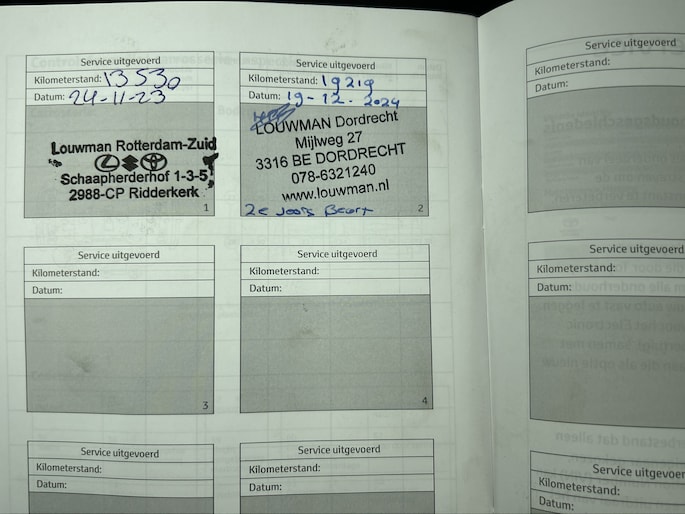 Service uitgevoerd
Kilometerstand: 13530
Datum: 24-11-23
Louwman Rotterdam-Zuid
Schaapherderhof 1-3-5
2988-CP Ridderkerk
1
Service uitgevoerd
Kilometerstand: 19219
Datum: 19-12-2024
LOUWMAN Dordrecht
Mijlweg 27
3316 BE DORDRECHT
078-6321240
www.louwman.nl
2e Jaars Beurt
2
Service uitgevoerd
Kilometerstand:
Datum:
3
Service uitgevoerd
Kilometerstand:
Datum:
4
Service uitgevoerd
Kilometerstand:
Datum:
Service uitgevoerd
Kilometerstand:
Datum:
Service uitgevoerd
Kilometerstand:
Datum:
Service uitgevoerd
Kilometerstand:
Datum:
Service uitgevoer
Kilometerstand:
Datum: